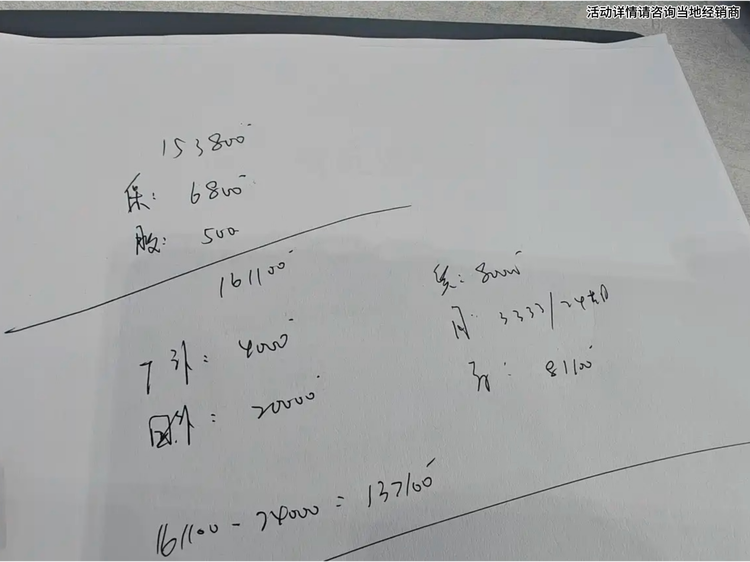 活动详情请咨询当地经销商
153800
保: 6800
服: 500
161100
厂补: 4000
国补: 20000
贷: 80000
月: 3333/24期
首: 81100
161100-24000=137100